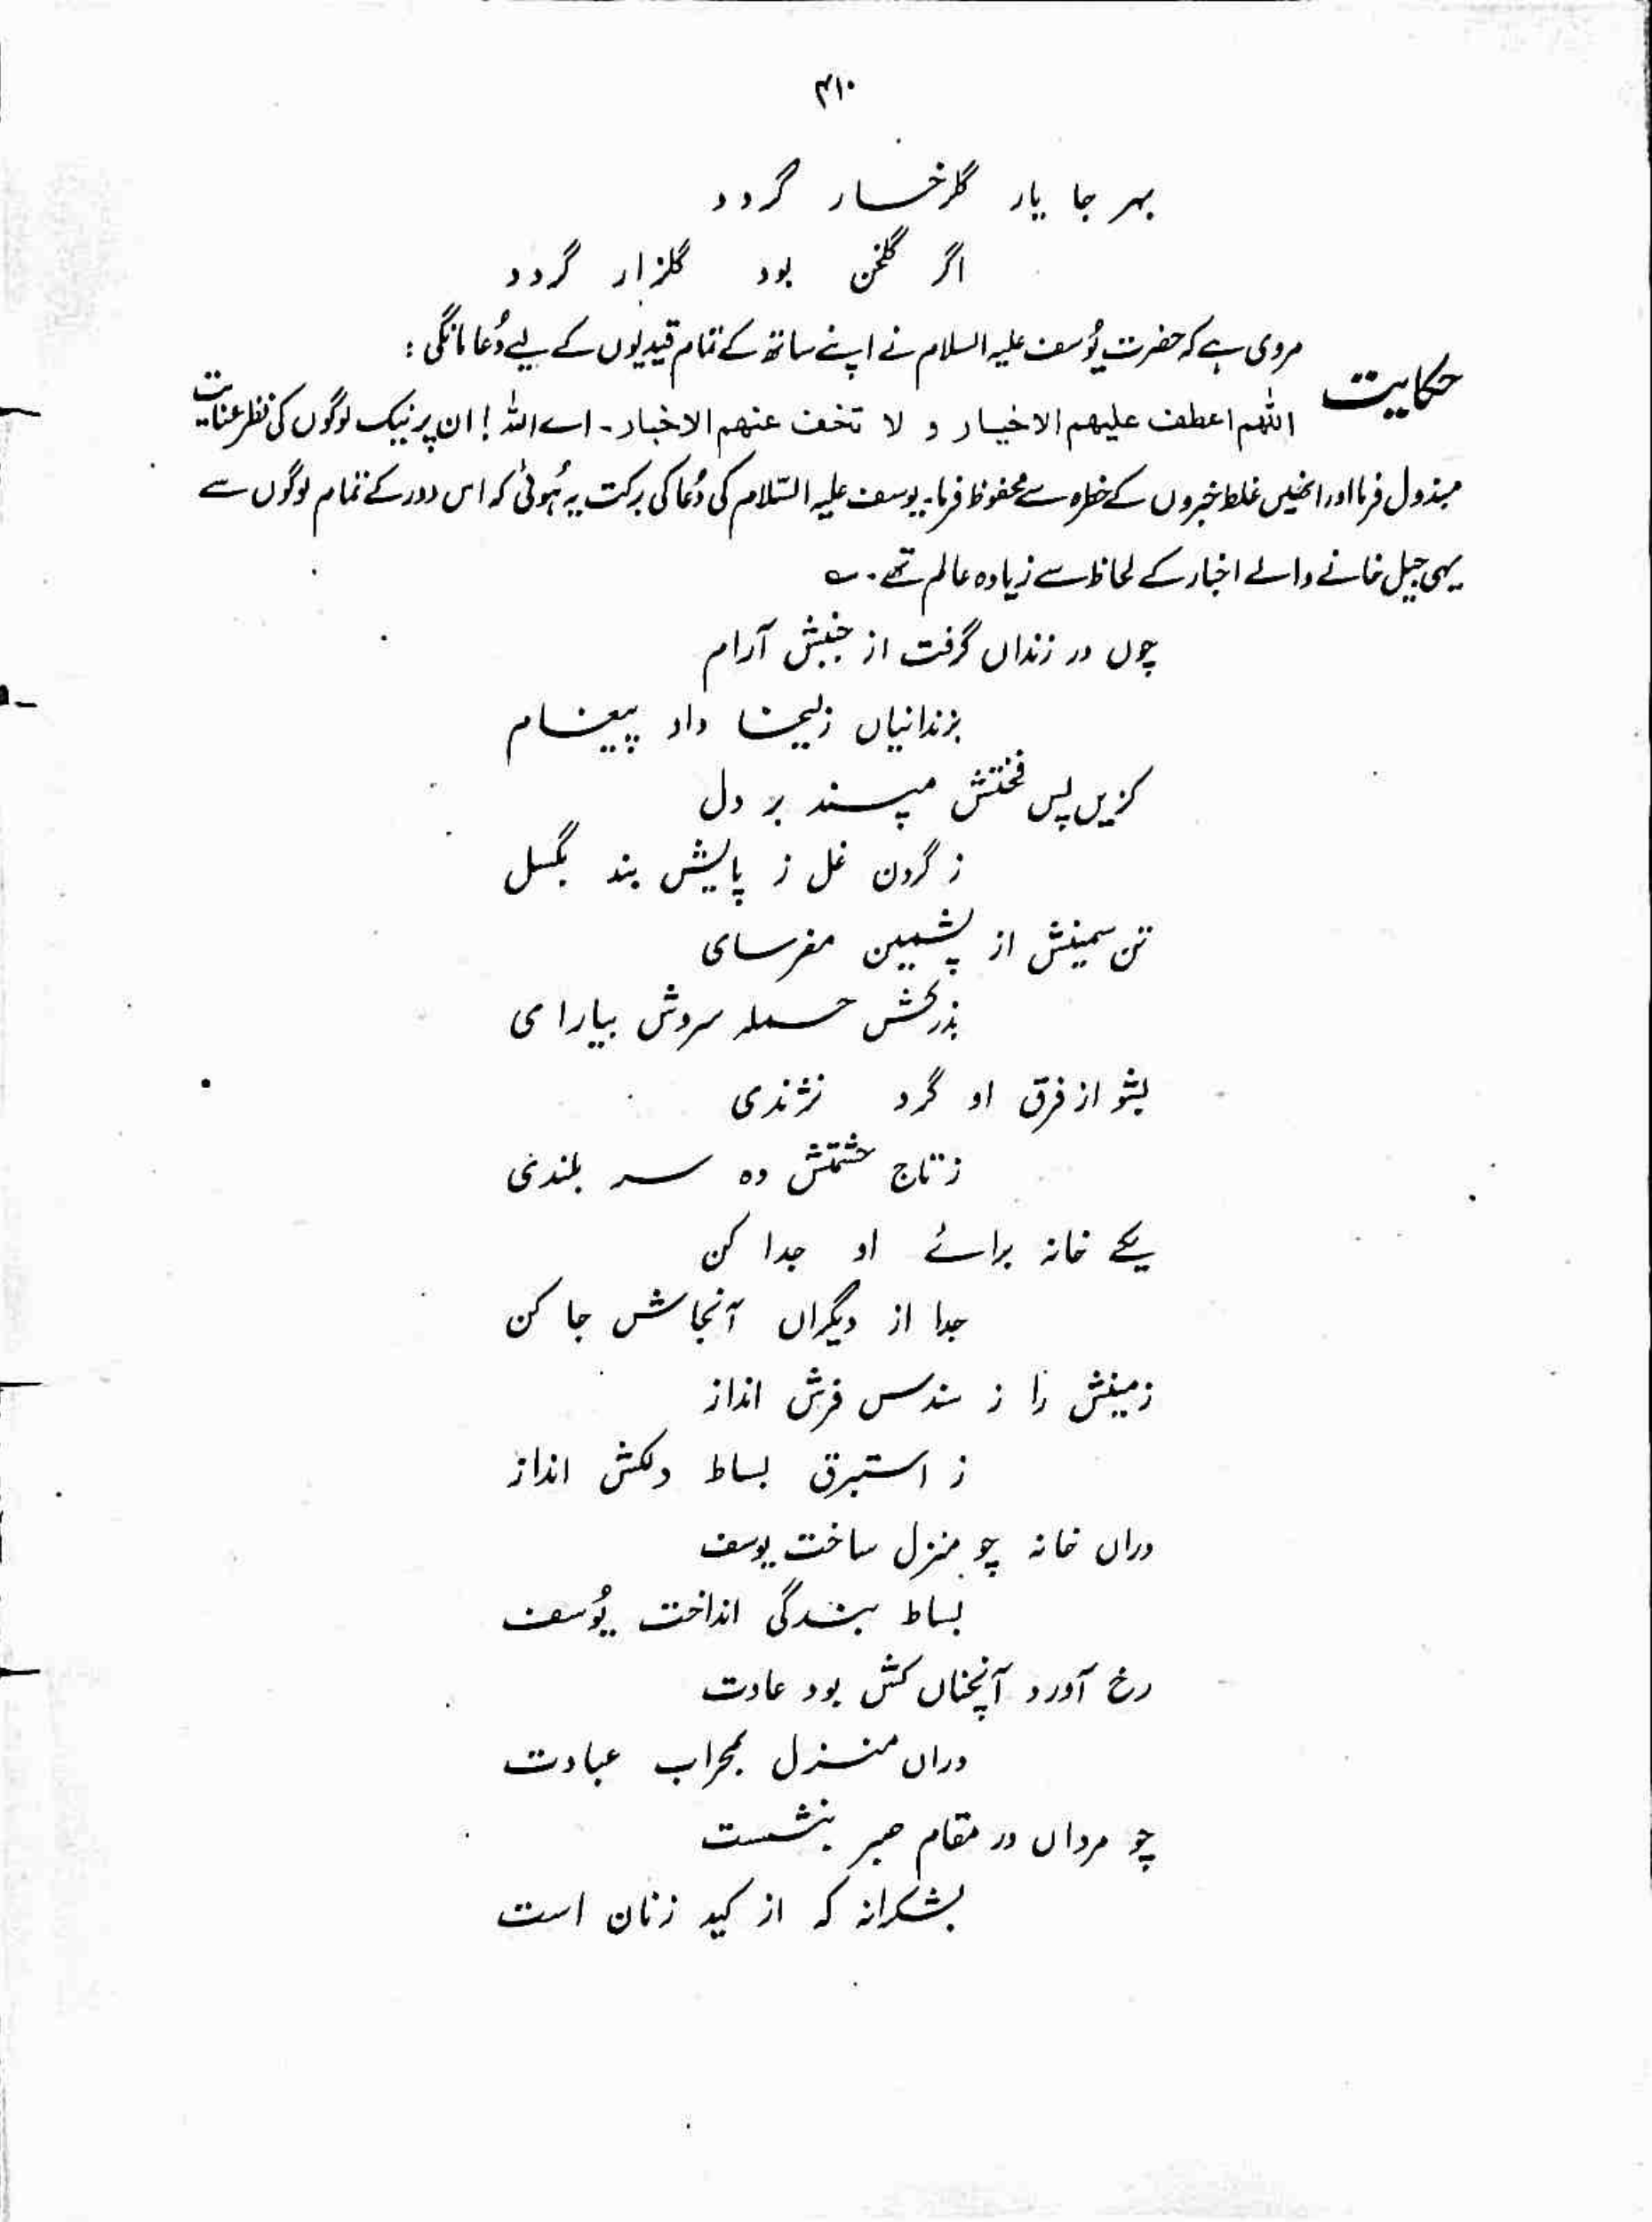 ۴۱۰
بہر جا یار گلرخسار گردد
اگر گلخن بود گلزار گردد
حکایت مروی ہے کہ حضرت یُوسف علیہ السلام نے اپنے ساتھ کے تمام قیدیوں کے لیے دُعا مانگی :
اللّٰھم اعطف علیھم الاخیار و لا تخف عنھم الاخبار۔ اے اللہ ! ان پر نیک لوگوں کی نظر عنایت
مبذول فرما اور انھیں غلط خبروں کے خطرہ سے محفوظ فرما۔ یوسف علیہ السّلام کی دُعا کی برکت یہ ہُوئی کہ اس دور کے تمام لوگوں سے
یہی جیل خانے والے اخبار کے لحاظ سے زیادہ عالم تھے۔ ؎
چوں در زنداں گرفت از جنبش آرام
بزندانیاں زلیخا داد پیغام
کزیں پس مپسند بر دل
ز گردن غل ز پایش بند بگسل
تن سیمینش از پشمین مفرسای
بزرکش حله سروش بیارای
بشو از فرق او گرد نژندی
ز تاج حشمتش دہ سر بلندی
یکے خانہ برائے او جدا کن
جدا از دیگراں آنجاش جا کن
زمینش را ز سندس فرش انداز
ز استبرق بساط دلکش انداز
دراں خانہ چو منزل ساخت یوسف
بساط بندگی انداخت یُوسف
رخ آورد آنچناں کش بود عادت
دراں منزل بمحراب عبادت
چو مرداں در مقام صبر بنشست
بشکرانہ کہ از کید زنان است